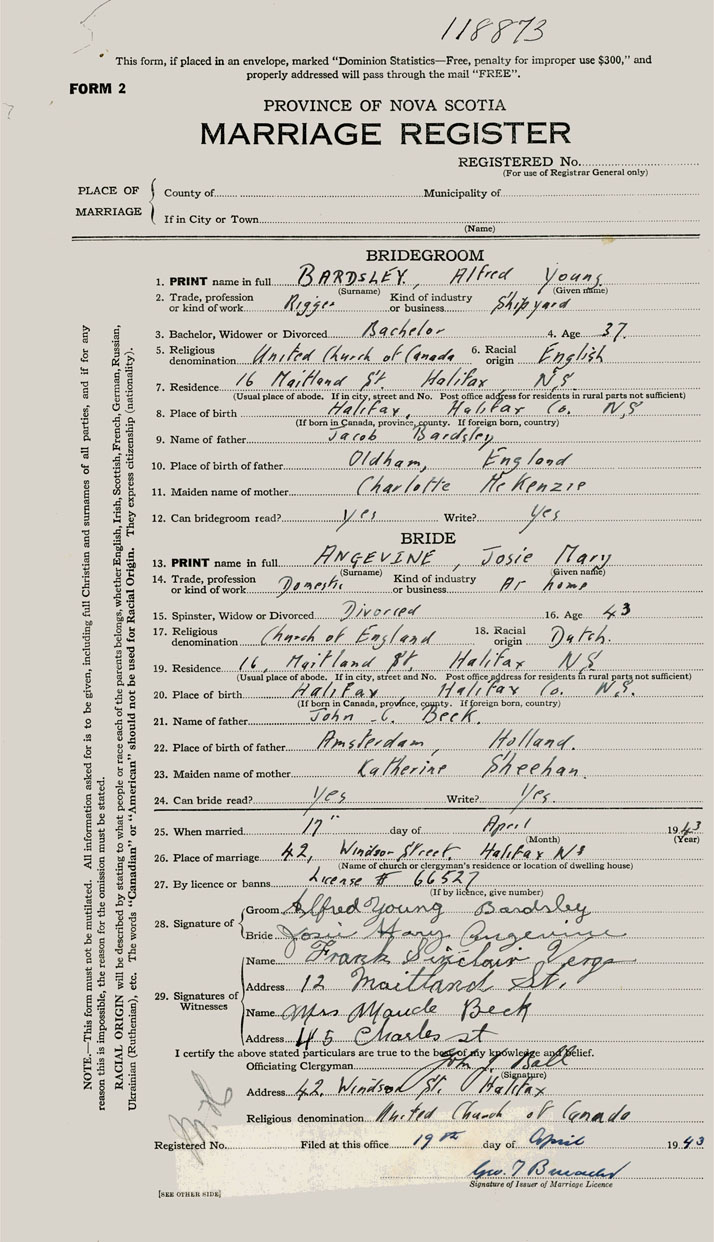 118873
This form, if placed in an envelope, marked "Dominion Statistics—Free, penalty for improper use $300," and
properly addressed will pass through the mail "FREE".
FORM 2
PROVINCE OF NOVA SCOTIA
MARRIAGE REGISTER
REGISTERED No.
(For use of Registrar General only)
PLACE OF MARRIAGE
County of Municipality of
If in City or Town
(Name)
BRIDEGROOM
1. PRINT name in full BARDSLEY, Alfred Young
(Surname) (Given name)
2. Trade, profession or kind of work Rigger Kind of industry or business Shipyard
3. Bachelor, Widower or Divorced Bachelor 4. Age 37.
5. Religious denomination United Church of Canada 6. Racial origin English
7. Residence 16 Maitland St. Halifax N.S.
(Usual place of abode. If in city, street and No. Post office address for residents in rural parts not sufficient)
8. Place of birth Halifax, Halifax Co. N.S
(If born in Canada, province, county. If foreign born, country)
9. Name of father Jacob Bardsley
10. Place of birth of father Oldham, England
11. Maiden name of mother Charlotte McKenzie
12. Can bridegroom read? yes Write? yes
BRIDE
13. PRINT name in full ANGEVINE, Josie Mary
(Surname) (Given name)
14. Trade, profession or kind of work Domestic Kind of industry or business At home
15. Spinster, Widow or Divorced Divorced 16. Age 43
17. Religious denomination Church of England 18. Racial origin Dutch.
19. Residence 16, Maitland St, Halifax N.S
(Usual place of abode. If in city, street and No. Post office address for residents in rural parts not sufficient)
20. Place of birth Halifax Halifax Co. N.S.
(If born in Canada, province, county. If foreign born, country)
21. Name of father John C. Beck.
22. Place of birth of father Amsterdam, Holland.
23. Maiden name of mother Katherine Sheehan.
24. Can bride read? Yes Write? Yes.
25. When married 17" day of April 1943
(Month) (Year)
26. Place of marriage 42, Windsor Street, Halifax NS
(Name of church or clergyman's residence or location of dwelling house)
27. By licence or banns License # 66527
(If by licence, give number)
28. Signature of
Groom Alfred Young Bardsley
Bride Josie Mary Angevine
29. Signatures of Witnesses
Name Frank Sinclair
Address 12 Maitland St.
Name Mrs Maude Beck
Address 45 Charles st
I certify the above stated particulars are true to the best of my knowledge and belief.
Officiating Clergyman John J Ball
(Signature)
Address 42, Windsor St. Halifax
Religious denomination United Church of Canada
Registered No. Filed at this office 19th day of April 1943
Geo. T
Signature of Issuer of Marriage Licence
[SEE OTHER SIDE]
NOTE.—This form must not be mutilated. All information asked for is to be given, including full Christian and surnames of all parties, and if for any
reason this is impossible, the reason for the omission must be stated.
RACIAL ORIGIN will be described by stating to what people or race each of the parents belongs, whether English, Irish, Scottish, French, German, Russian,
Ukrainian (Ruthenian), etc. The words "Canadian" or "American" should not be used for Racial Origin. They express citizenship (nationality).